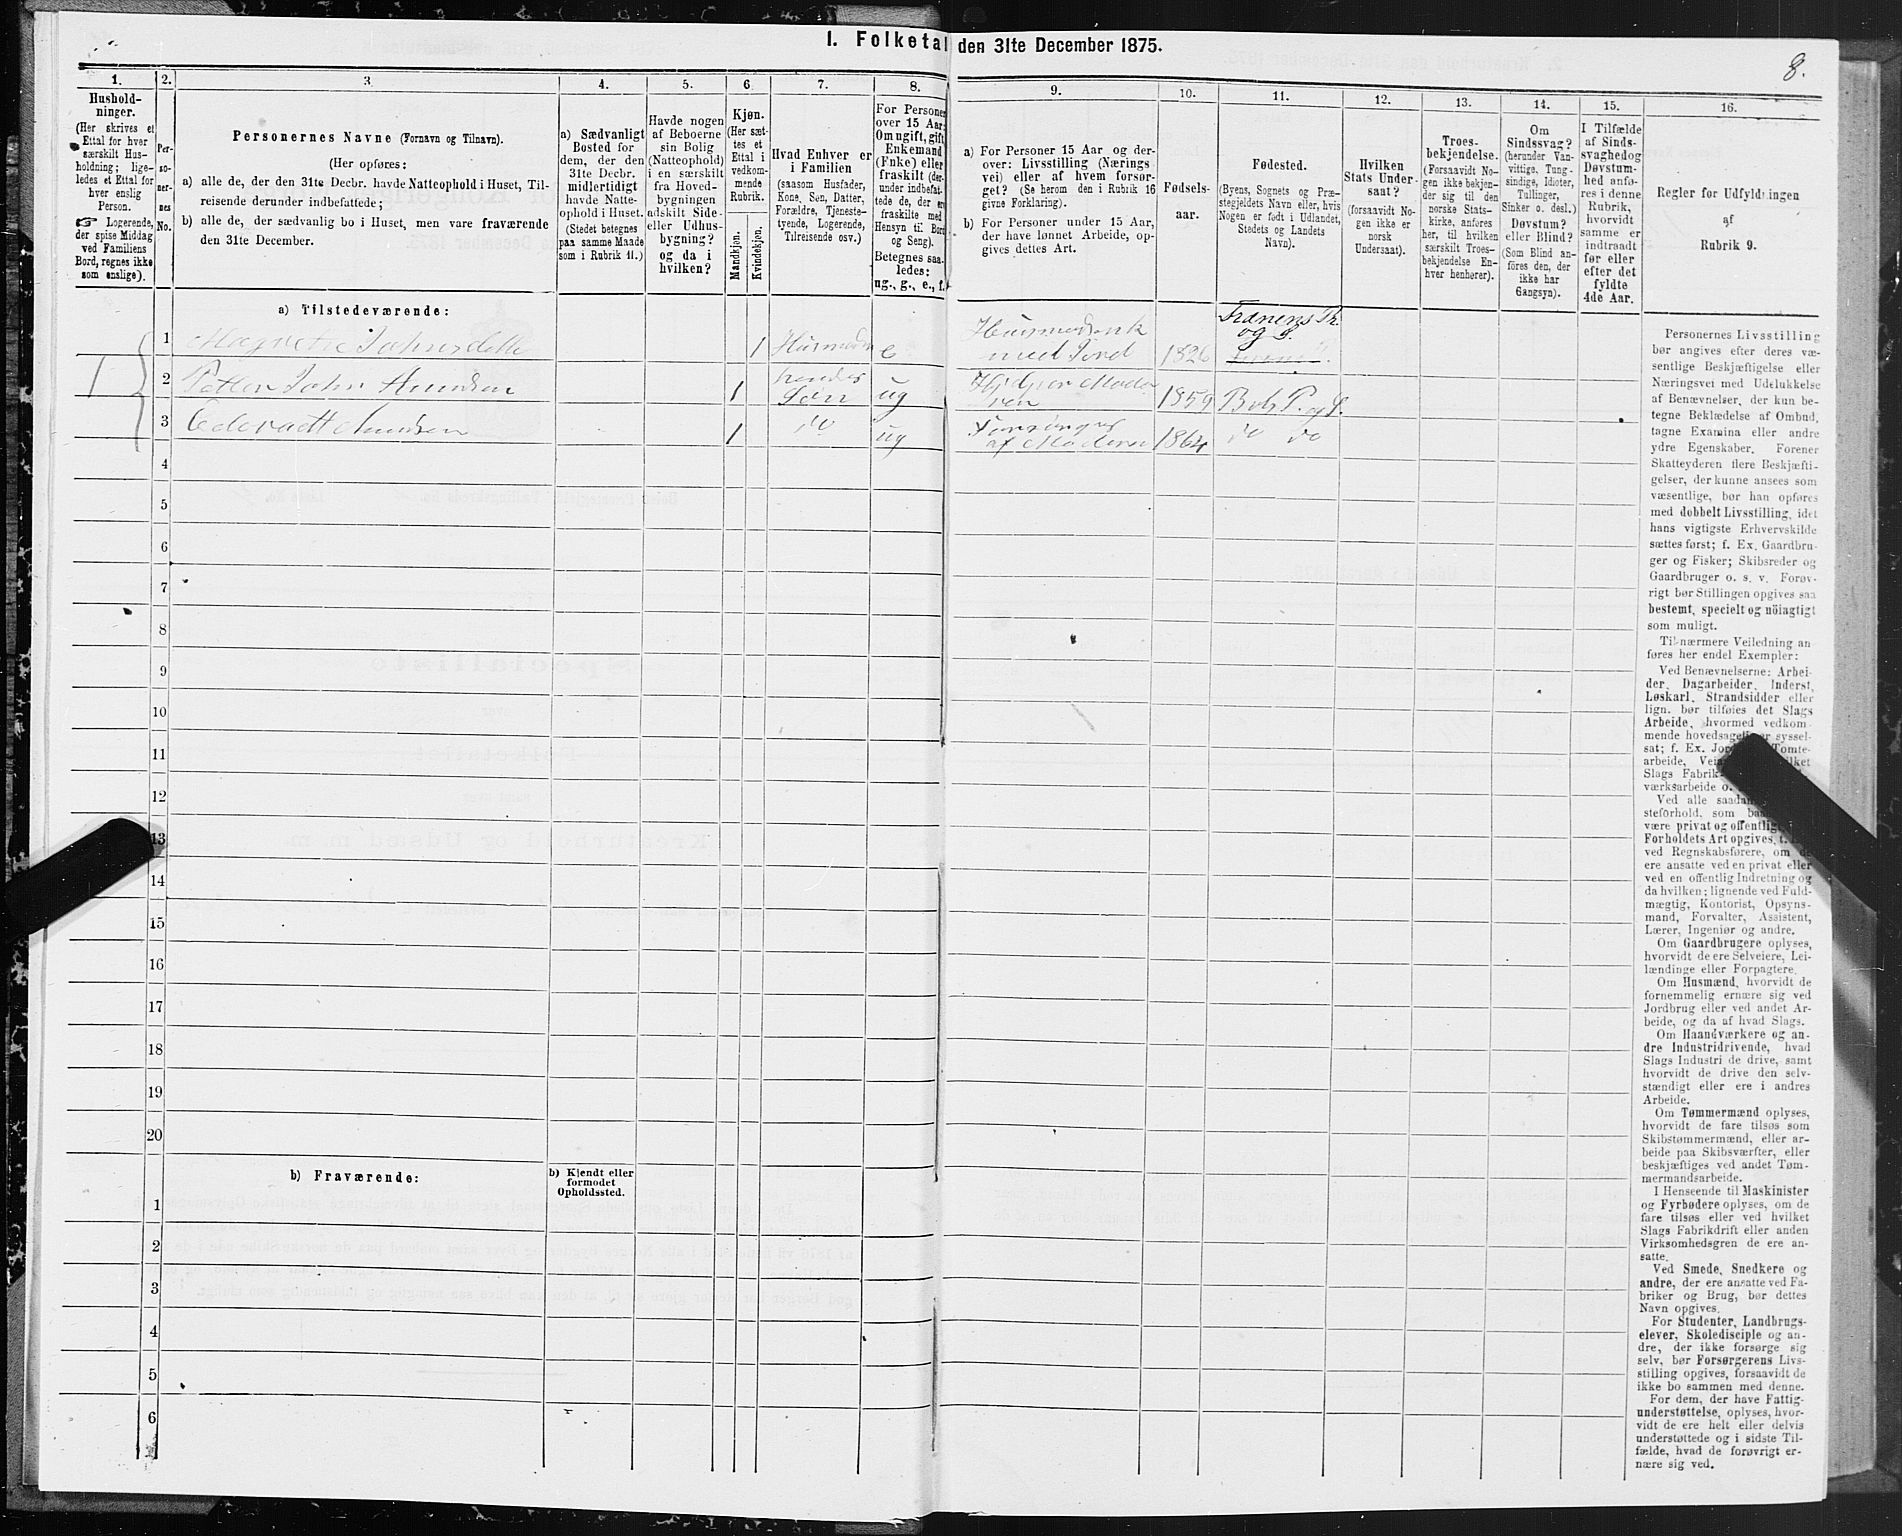 I. Folketal den 31te December 1875.
8.
1.
Hushold-
ninger.
(Her skrives et
Ettal for hver
særskilt Hus-
holdning; lige-
ledes et Ettal for
hver enslig
Person.
☞ Logerende,
der spise Middag
ved Familiens
Bord, regnes ikke
som enslige).
2.
Per-
so-
ner-
nes
No.
3.
Personernes Navne (Fornavn og Tilnavn).
(Her opføres:
a) alle de, der den 31te Decbr. havde Natteophold i Huset, Til-
reisende derunder indbefattede;
b) alle de, der sædvanlig bo i Huset, men vare fraværende
den 31te December.
4.
a) Sædvanligt
Bosted for
dem, der den
31te Decbr.
midlertidigt
havde Natte-
ophold i Huset.
(Stedet betegnes
paa samme Maade
som i Rubrik 11.)
5.
Havde nogen
af Beboerne
sin Bolig
(Natteophold)
i en særskilt
fra Hoved-
bygningen
adskilt Side-
eller Udhus-
bygning?
og da i
hvilken?
6.
Kjøn.
(Her sæt-
tes et
Ettal i
vedkom-
mende
Rubrik.
Mandkjøn.
Kvindekjøn.
7.
Hvad Enhver er
i Familien
(saasom Husfader,
Kone, Søn, Datter,
Forældre, Tjeneste-
tyende, Logerende,
Tilreisende osv.)
8.
For Personer
over 15 Aar:
Om ugift, gift,
Enkemand
(Enke) eller
fraskilt (der-
under indbefat-
tede de, der ere
fraskilte med
Hensyn til Bord
og Seng).
Betegnes saa-
ledes:
ug., g., e., f.
9.
a) For Personer 15 Aar og der-
over: Livsstilling (Nærings-
vei) eller af hvem forsør-
get? (Se herom den i Rubrik 16
givne Forklaring).
b) For Personer under 15 Aar,
der have lønnet Arbeide, op-
gives dettes Art.
10.
Fødsels-
aar.
11.
Fødested.
(Byens, Sognets og Præ-
stegjeldets Navn eller, hvis
Nogen er født i Udlandet,
Stedets og Landets
Navn).
12.
Hvilken
Stats Under-
saat?
(forsaavidt No-
gen ikke er
norsk
Undersaat).
13.
Troes-
bekjendelse.
(Forsaavidt No-
gen ikke bekjen-
der sig til den
norske Stats-
kirke, anføres
her, til hvilken
særskilt Troes-
bekjendelse En-
hver henhører).
14.
Om
Sindssvag?
(herunder Van-
vittige, Tung-
sindige, Idioter,
Tullinger,
Sinker o. desl.)
Døvstum?
eller Blind?
(Som Blind an-
føres den, der
ikke har
Gangsyn).
15.
I Tilfælde
af Sinds-
svaghed og
Døvstum-
hed anfø-
res i denne
Rubrik,
hvorvidt
samme er
indtraadt
før eller
efter det
fyldte
4de Aar.
16.
Regler for Udfyldningen
af
Rubrik 9.
a) Tilstedeværende:
1 1 e Husmodsenk med Jord 1826
1 2 John Amundsen 1 hendes Søn ug 1859
3 Amundsen 1 do ug Forsørges af Moderen 1864 do do
4
5
6
7
8
9
10
11
12
13
14
15
16
17
18
19
20
b) Fraværende:
b) Kjendt eller
formodet
Opholdssted.
1
2
3
4
5
6
Personernes Livsstilling
bør angives efter deres væ-
sentlige Beskjæftigelse eller
Næringsvei med Udelukkelse
af Benævnelser, der kun be-
tegne Beklædelse af Ombud,
tagne Examina eller andre
ydre Egenskaber. Forener
Skatteyderen flere Beskjæfti-
gelser, der kunne ansees som
væsentlige, bør han opføres
med dobbelt Livsstilling, idet
hans vigtigste Erhvervskilde
sættes først; f. Ex. Gaardbru-
ger og Fisker; Skibsreder og
Gaardbruger o. s. v. Forøv-
rigt bør Stillingen opgives saa
bestemt, specielt og nöiagtigt
som muligt.
Til nærmere Veiledning an-
føres her endel Exempler:
Ved Benævnelserne: Arbei-
der, Dagarbeider, Inderst,
Løskarl, Strandsidder eller
lign. bør tilføies det Slags
Arbeide, hvormed vedkom-
mende hovedsageligt er syssel-
sat; f. Ex. Tomte-
arbeide,
Slags Fabrik-
værksarbeide o.
Ved alle saadanne
være privat og offentlig
Forholdets Art opgives,
ved Regnskabsførere, om de
ere ansatte ved en privat eller
ved en offentlig Indretning og
da hvilken; lignende ved Fuld-
mægtig, Kontorist, Opsyns-
mand, Forvalter, Assistent,
Lærer, Ingeniør og andre.
Om Gaardbrugere oplyses,
hvorvidt de ere Selveiere, Lei-
lændinge eller Forpagtere.
Om Husmænd, hvorvidt de
fornemmelig ernære sig ved
Jordbrug eller ved andet Ar-
beide, og da af hvad Slags.
Om Haandværkere og an-
dre Industridrivende, hvad
Slags Industri de drive, samt
hvorvidt de drive den selv-
stændigt eller ere i andres
Arbeide.
Om Tømmermænd oplyses,
hvorvidt de fare tilsøs som
Skibstømmermænd, eller ar-
beide paa Skibsværfter, eller
beskjæftiges ved andet Tøm-
mermandsarbeide.
I Henseende til Maskinister
og Fyrbødere oplyses, om de
fare tilsøs eller ved hvilket
Slags Fabrikdrift eller anden
Virksomhedsgren de ere an-
satte.
Ved Smede, Snedkere og
andre, der ere ansatte ved Fa-
briker og Brug, bør dettes
Navn opgives.
For Studenter, Landbrugs-
elever, Skoledisciple og an-
dre, der ikke forsørge sig
selv, bør Forsørgerens Livs-
stilling opgives, forsaavidt de
ikke bo sammen med denne.
For dem, der have Fattig-
understøttelse, oplyses, hvor-
vidt de ere helt eller delvis
understøttede og i sidste Til-
fælde, hvad de forøvrigt er-
nære sig ved.